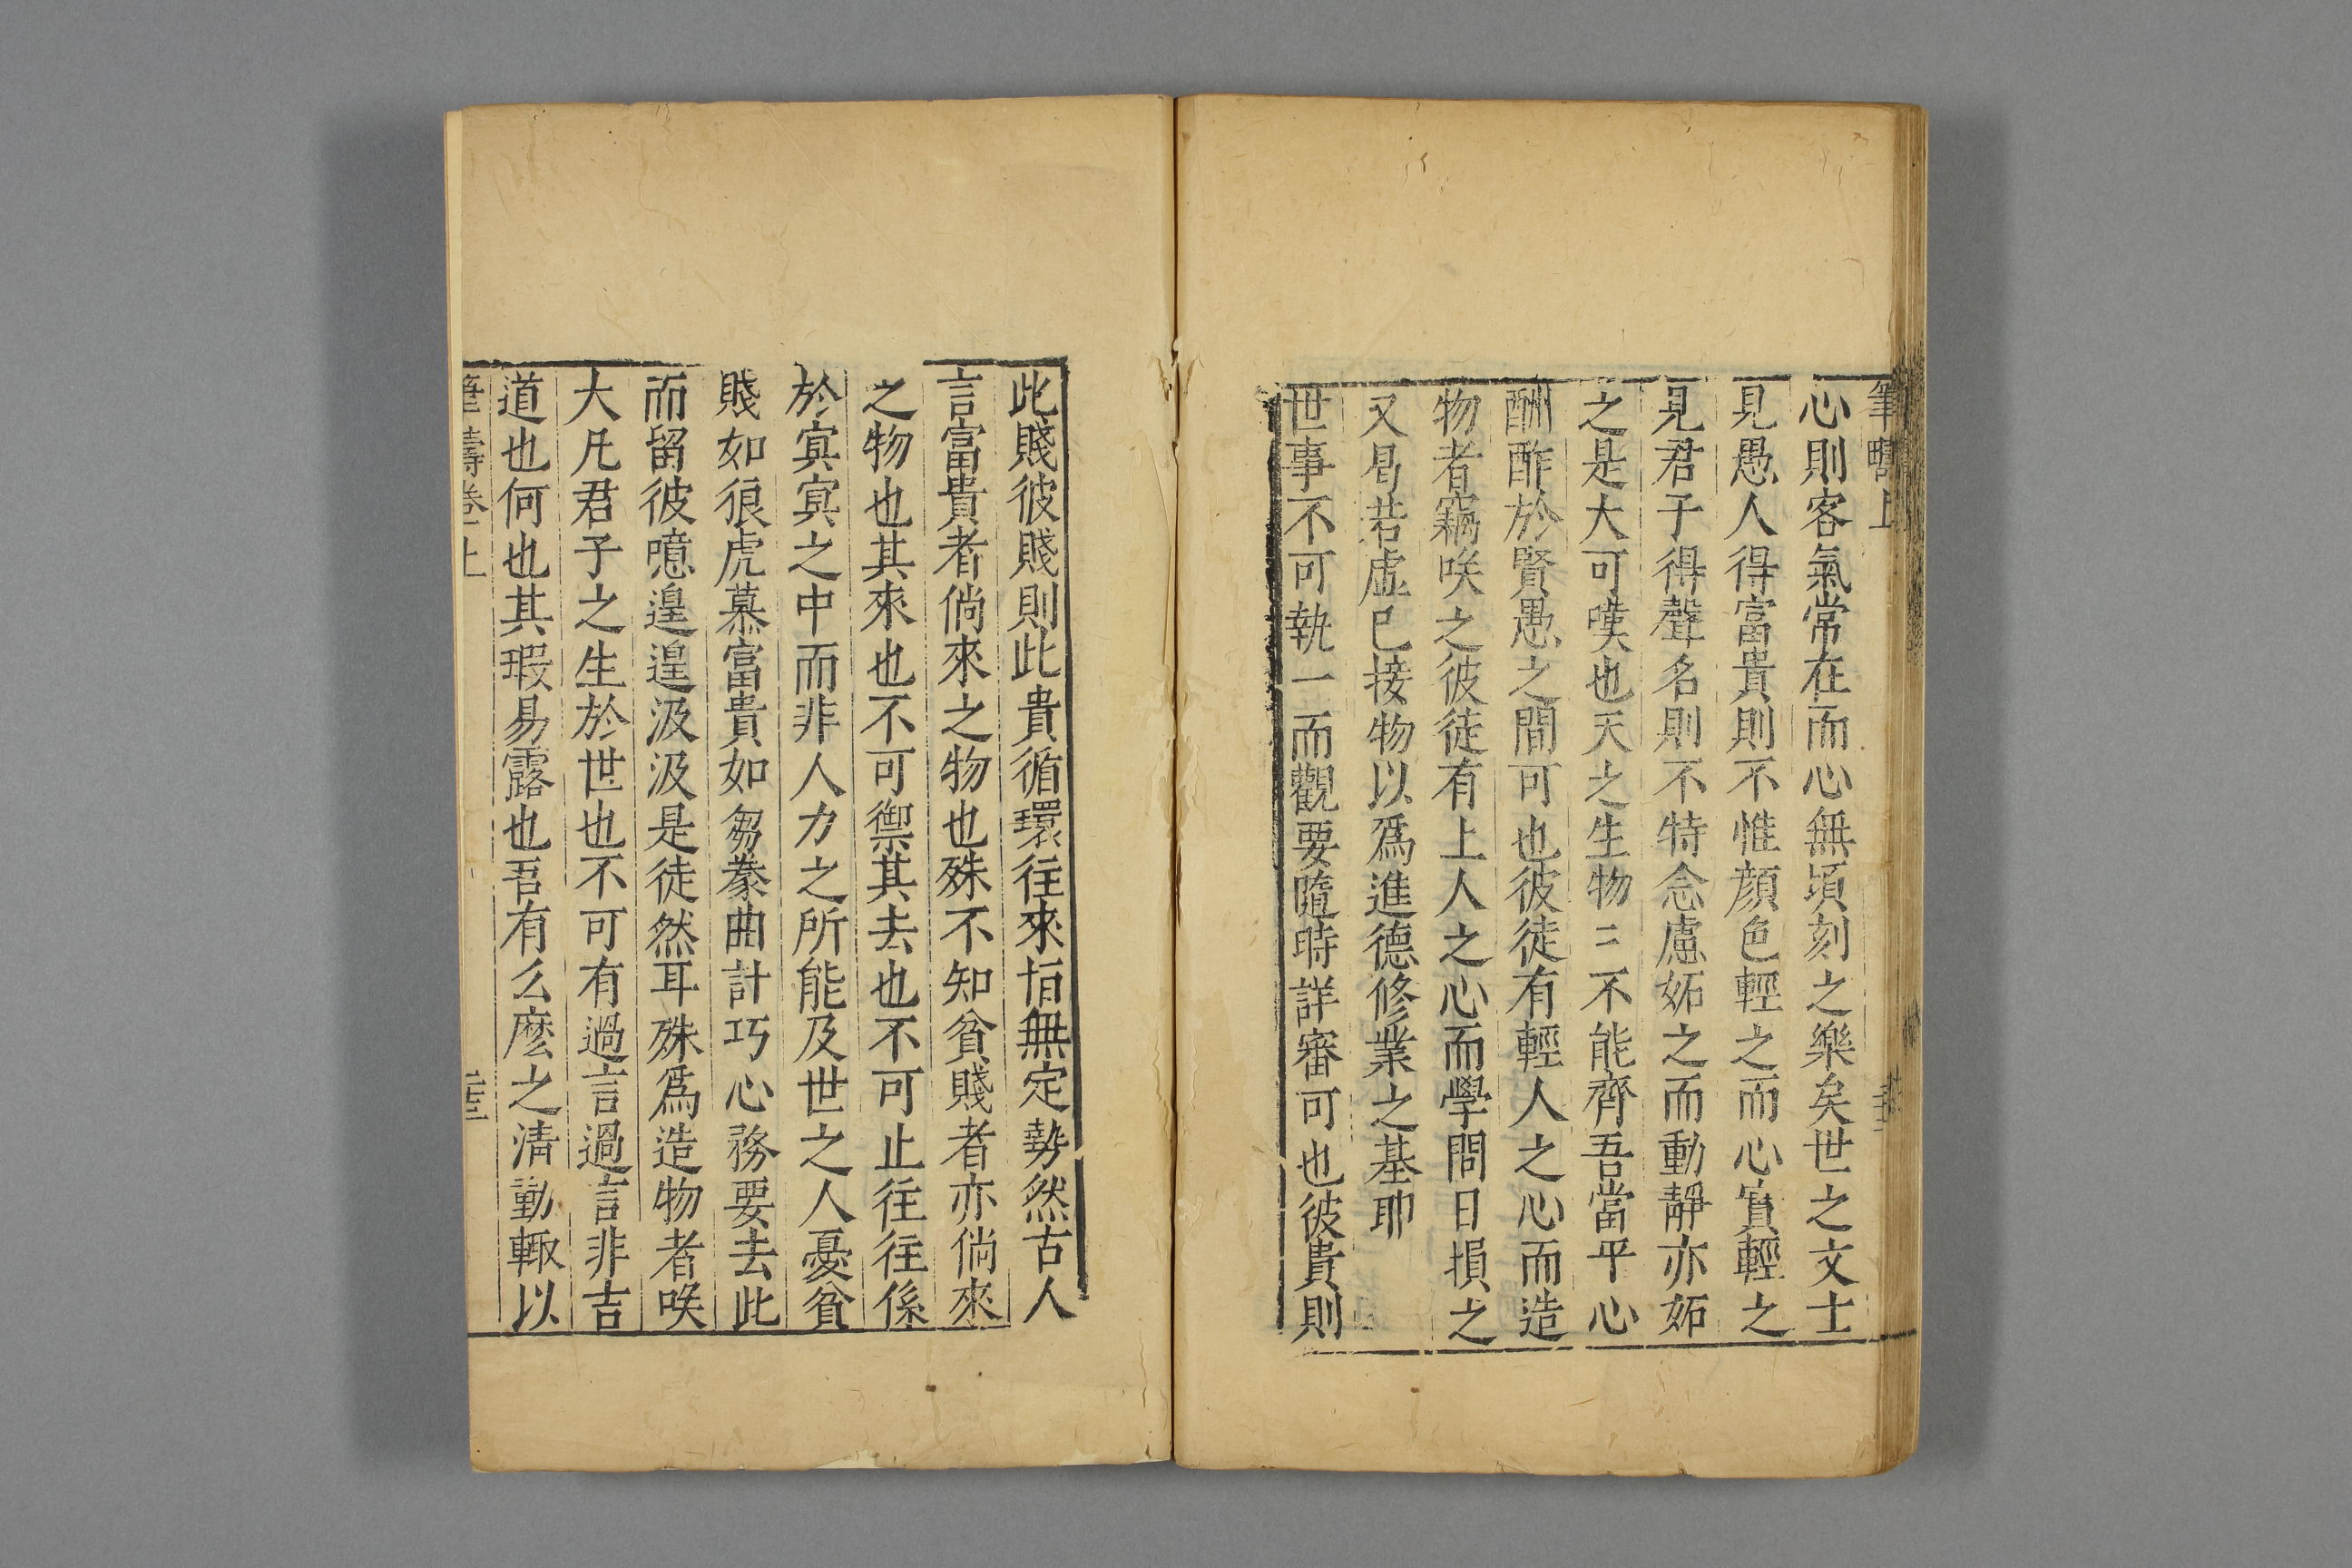 筆疇上
心則客氣常在而心無頃刻之樂矣世之文士
見愚人得富貴則不惟顏色輕之而心實輕之
見君子得聲名則不特念慮妬之而動靜亦妬
之是大可嘆也天之生物〻不能齊吾當平心
酬酢於賢愚之間可也彼徒有輕人之心而造
物者竊咲之彼徒有上人之心而學問日損之
又曷若虛己接物以爲進德修業之基耶
世事不可執一而觀要隨時詳審可也彼貴則
此賤彼賤則此貴循環往來恒無定勢然古人
言富貴者倘來之物也殊不知貧賤者亦倘來
之物也其來也不可禦其去也不可止往往係
於寘寘之中而非人力之所能及世之人憂貧
賤如狼虎慕富貴如芻豢曲計巧心務要去此
而留彼噫遑遑汲汲是徒然耳殊爲造物者咲
大凡君子之生於世也不可有過言過言非吉
道也何也其瑕易露也吾有么麽之清動輙以
筆疇卷上